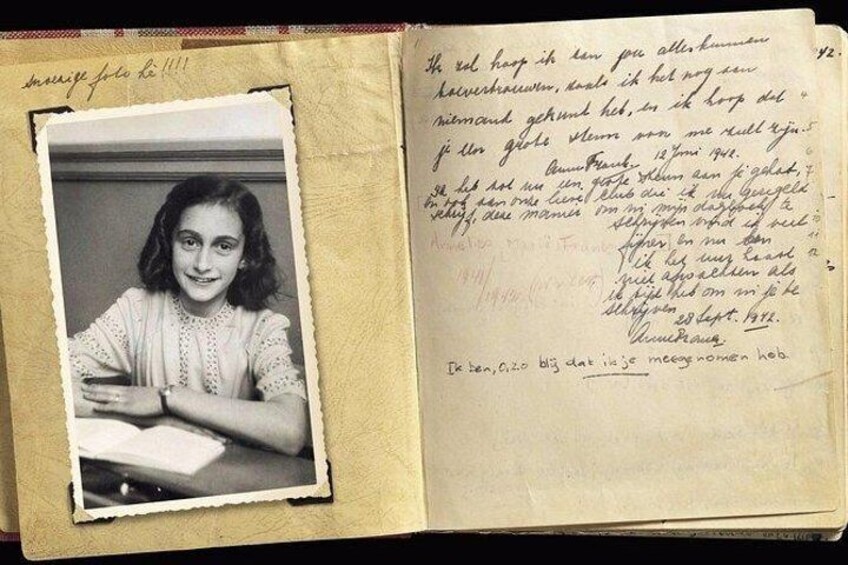 snoezige foto hè!!!!
Ik zal hoop ik aan jou alles kunnen
toevertrouwen, zoals ik het nog aan
niemand gekund heb, en ik hoop dat
je een grote steun voor me zult zijn.
Anne Frank. 12 Juni 1942.
Ik heb tot nu een grote steun aan je gehad,
en ook aan onze lieve club die ik nu geregeld
schrijf, deze manier om in mijn dagboek te
schrijven vind ik veel
fijner en nu kan
ik het uur haast
niet afwachten als
ik tijd heb om in je te
schrijven.
28 Sept. 1942.
Anne Frank.
Ik ben, o, zo blij dat ik je meegenomen heb
42.